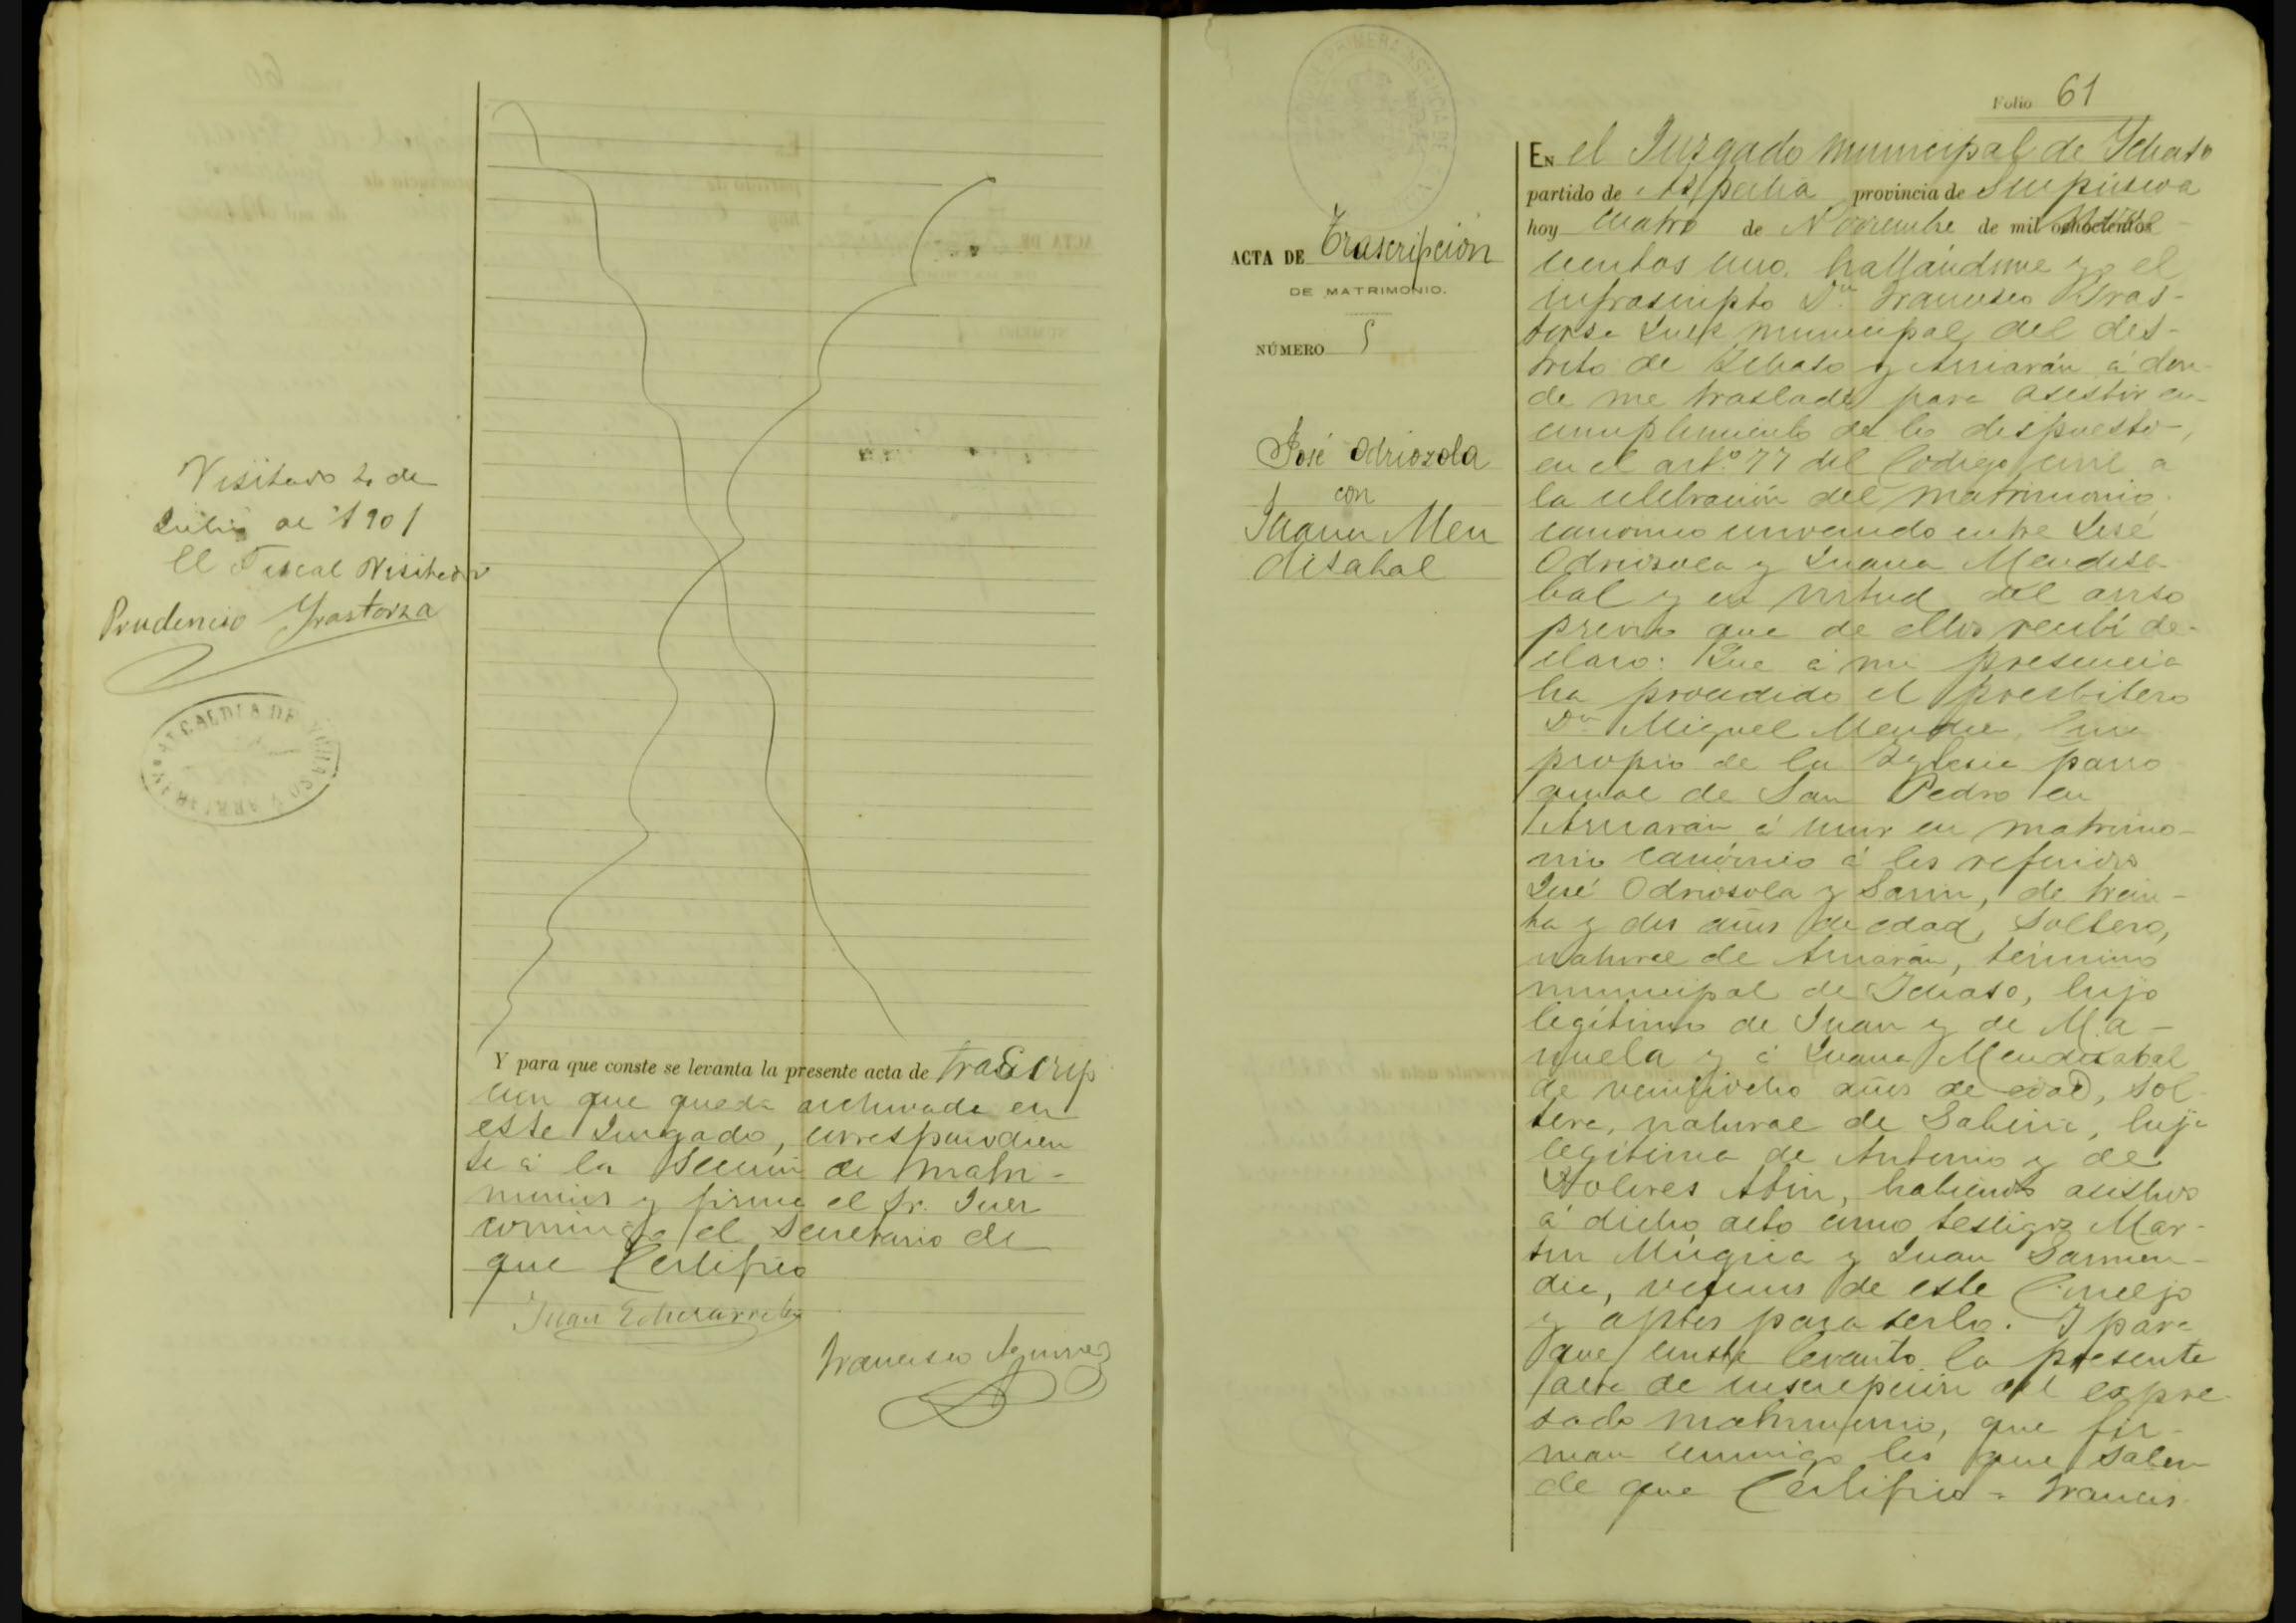 Visitado 2 de
Julio de 1901
El Fiscal Visitador
Prudencio Yrastorza
ALCALDIA DE YCHASO Y ARRIARAN
Y para que conste se levanta la presente acta de trascrip
cion que queda archivada en
este Jurgado, correspondien
te á la Sección de matri-
monios y firma el Sr. Juez
conmigo el Secretario de
que Certifico
Juan Echevarrieta
Francisco Aguirre
Folio 61
JUZGADO DE PRIMERA INSTANCIA DE
ACTA DE Trascripción
DE MATRIMONIO.
NÚMERO 5
José Odriozola
con
Juana Men
disabal
EN el Juzgado municipal de Ichaso
partido de Azpeitia provincia de Guipúscoa
hoy cuatro de Noviembre de mil ochocientos
cientos uno, hallándome yo el
infrascripto Dn. Francisco Yras-
torsa Juez municipal del dis-
trito de Ichaso y Arriarán á don-
de me trasladé para asistir en
cumplimiento de lo dispuesto
en el artº 77 del Codigo civil a
la celebración del matrimonio
canonico convenido entre José
Odriosola y Juana Mendisa
bal y en virtud del aviso
previo que de ellos recibí de-
claro: Que á mi presencia
ha procedido el presbitero
Dn Miguel Mendia, Cura
propio de la Iglesia parro
quial de San Pedro en
Arriarán á unir en matrimo-
nio canónico á los referidos
José Odriosola y de trein-
ta y dos años de edad, soltero,
natural de Arriarán, término
municipal de Ichaso, hijo
legítimo de Juan y de Ma-
nuela y á Juana Mendisabal
de veintiocho años de edad, sol
tera, natural de Gabiria, hija
legítima de Antonio y de
Dolores habiendo asistido
á dicho acto como testigos Mar-
tin Múgica y Juan Garmen-
dia, vecinos de este Concejo
y aptos para serlo. Y para
que conste levanto la presente
acta de inscripción del expre
sado matrimonio, que fir-
man conmigo los que saben
de que Certifico = Francis